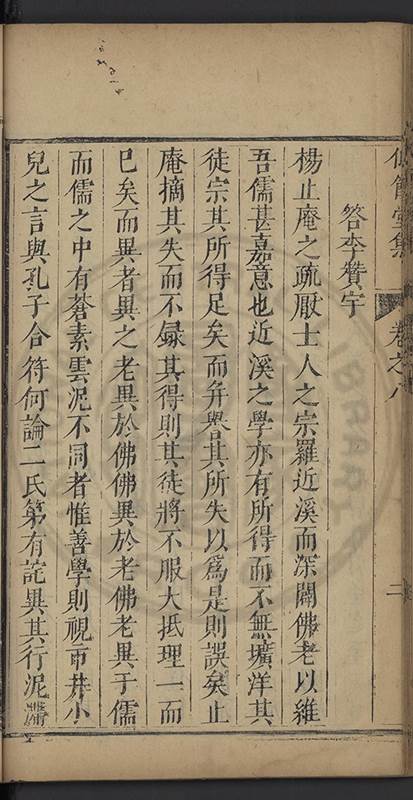 卷之八
二
答李贊宇
楊止庵之疏厭士人之宗羅近溪而深闢佛老以維
吾儒甚嘉意也近溪之學亦有所得而不無壙洋其
徒宗其所得足矣而弁譽其所失以爲是則誤矣止
庵摘其失而不録其得則其徒將不服大抵理一而
已矣而異者異之老異於佛佛異於老佛老異于儒
而儒之中有蒼素雲泥不同者惟善學則視市井小
兒之言與孔子合符何論二氏第有詫異其行泥滯